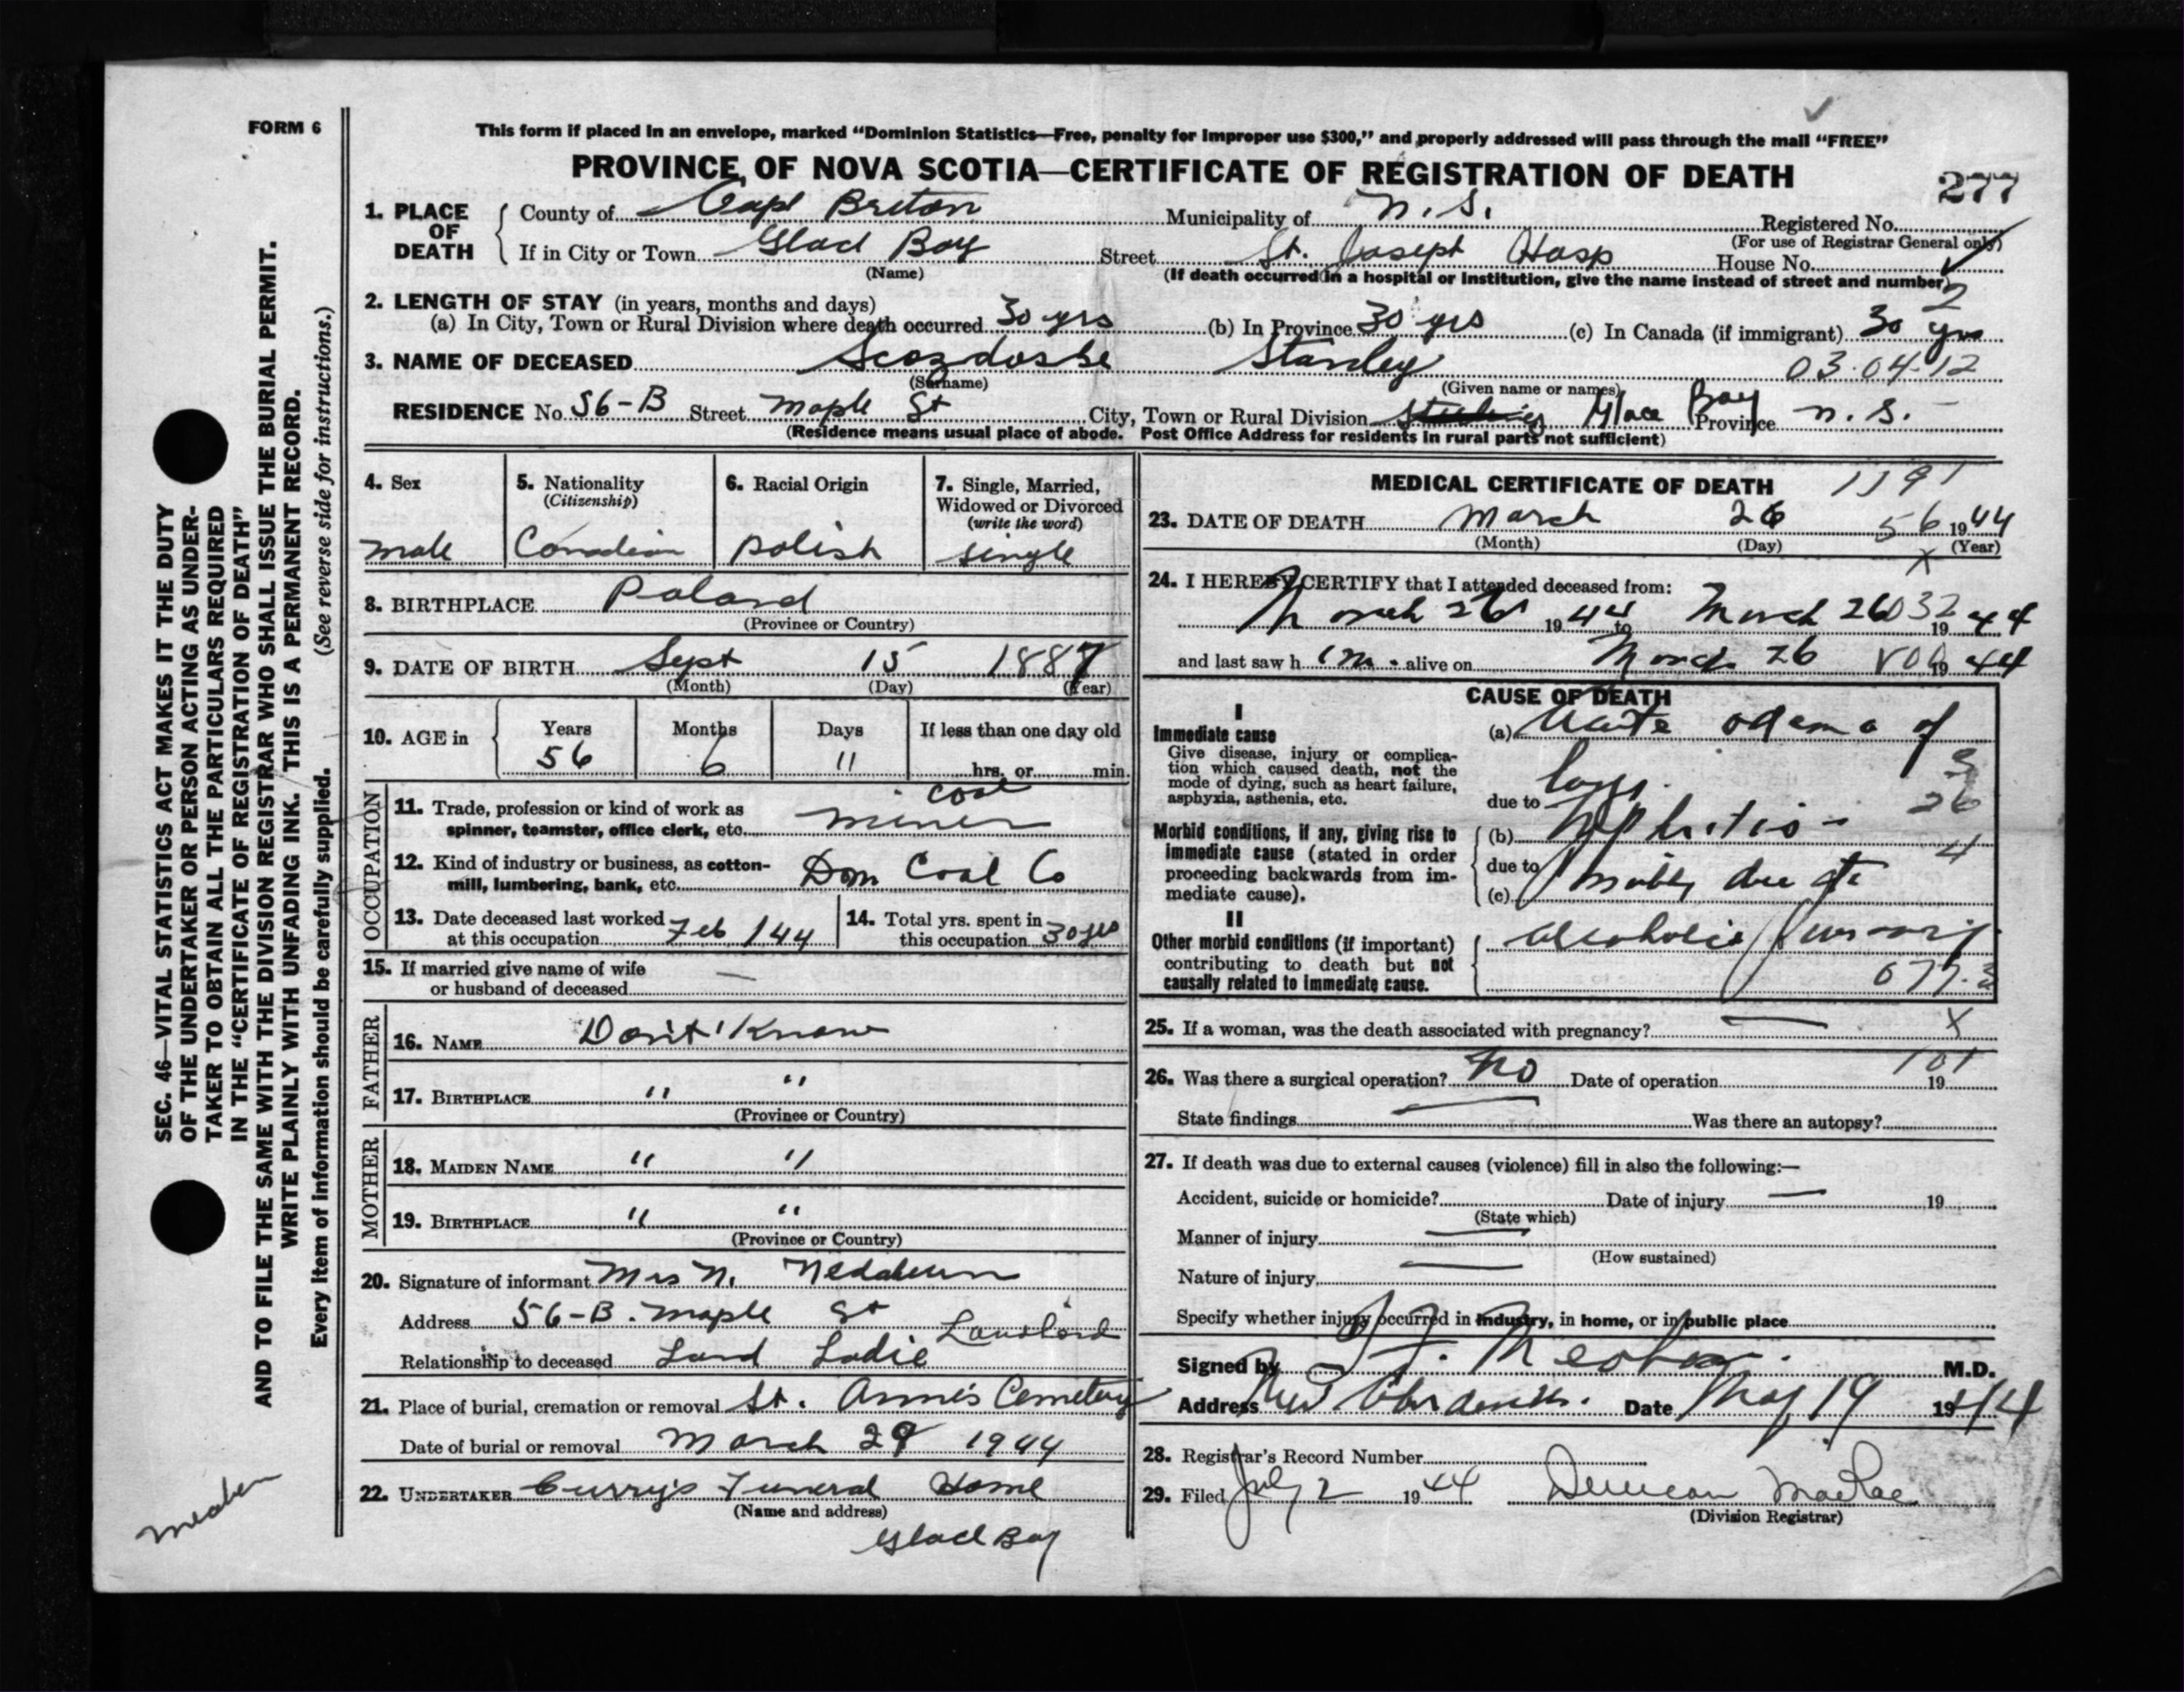 FORM 6
This form if placed in an envelope, marked “Dominion Statistics—Free, penalty for improper use $300,” and properly addressed will pass through the mail “FREE”
PROVINCE OF NOVA SCOTIA—CERTIFICATE OF REGISTRATION OF DEATH
277
1. PLACE OF DEATH
County of Cape Breton Municipality of N.S. Registered No.
(For use of Registrar General only)
If in City or Town Glace Bay Street St. Joseph Hosp House No.
(Name) (If death occurred in a hospital or institution, give the name instead of street and number)
2
2. LENGTH OF STAY (in years, months and days)
(a) In City, Town or Rural Division where death occurred 30 yrs (b) In Province 30 yrs (c) In Canada (if immigrant) 30 yrs
3. NAME OF DECEASED Stanley 03.04.12
(Surname) (Given name or names)
RESIDENCE No. 56-B Street Maple St City, Town or Rural Division Glace Bay Province N.S.
(Residence means usual place of abode. Post Office Address for residents in rural parts not sufficient)
4. Sex
male
5. Nationality
(Citizenship)
Canadian
6. Racial Origin
Polish
7. Single, Married, Widowed or Divorced
(write the word)
single
8. BIRTHPLACE Poland
(Province or Country)
9. DATE OF BIRTH Sept 15 1887
(Month) (Day) (Year)
10. AGE in
Years Months Days If less than one day old
56 6 11 hrs. or min.
OCCUPATION
11. Trade, profession or kind of work as
spinner, teamster, office clerk, etc. coal miner
12. Kind of industry or business, as cotton-
mill, lumbering, bank, etc. Dom Coal Co
13. Date deceased last worked
at this occupation Feb / 44
14. Total yrs. spent in
this occupation 30 yrs
15. If married give name of wife
or husband of deceased —
FATHER
16. NAME Don't Know
17. BIRTHPLACE " "
(Province or Country)
MOTHER
18. MAIDEN NAME " "
19. BIRTHPLACE " "
(Province or Country)
20. Signature of informant Mrs N.
Address 56-B. Maple St
Landlord
Relationship to deceased Land Ladie
21. Place of burial, cremation or removal St. Anne's Cemetery
Date of burial or removal March 29 1944
22. UNDERTAKER Curry's Funeral Home
(Name and address)
Glace Bay
MEDICAL CERTIFICATE OF DEATH
23. DATE OF DEATH March 26 56 1944
(Month) (Day) (Year)
X
24. I HEREBY CERTIFY that I attended deceased from:
March 26 1944 to March 26 032 1944
and last saw h im alive on March 26 1944
CAUSE OF DEATH
I
Immediate cause
Give disease, injury or complica-
tion which caused death, not the
mode of dying, such as heart failure,
asphyxia, asthenia, etc.
(a) Acute odema of
lungs
due to
3
26
4
Morbid conditions, if any, giving rise to
immediate cause (stated in order
proceeding backwards from im-
mediate cause).
(b) Nephritis -
due to
(c) due to
II
Other morbid conditions (if important)
contributing to death but not
causally related to immediate cause.
alcoholic
077.3
25. If a woman, was the death associated with pregnancy? — X
101
26. Was there a surgical operation? No Date of operation 19
State findings — Was there an autopsy?
27. If death was due to external causes (violence) fill in also the following:—
Accident, suicide or homicide? Date of injury — 19
(State which)
Manner of injury —
(How sustained)
Nature of injury —
Specify whether injury occurred in industry, in home, or in public place
Signed by M.D.
Address New Aberdeen. Date May 19 1944
28. Registrar's Record Number
29. Filed July 2 1944 Duncan MacRae
(Division Registrar)
SEC. 46—VITAL STATISTICS ACT MAKES IT THE DUTY
OF THE UNDERTAKER OR PERSON ACTING AS UNDER-
TAKER TO OBTAIN ALL THE PARTICULARS REQUIRED
IN THE “CERTIFICATE OF REGISTRATION OF DEATH”
AND TO FILE THE SAME WITH THE DIVISION REGISTRAR WHO SHALL ISSUE THE BURIAL PERMIT.
WRITE PLAINLY WITH UNFADING INK. THIS IS A PERMANENT RECORD.
Every item of information should be carefully supplied. (See reverse side for instructions.)